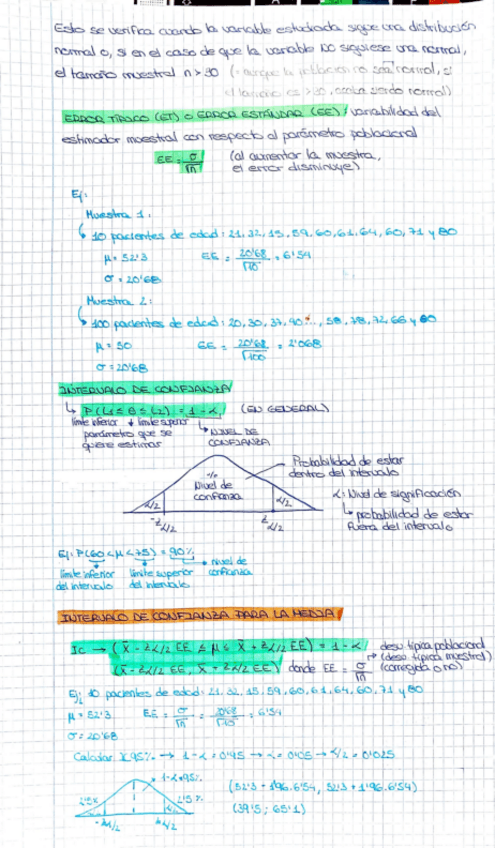 Esto se verifica cuando la variable estudiada sigue una distribución
normal o, si en el caso de que la variable no siguiese una normal,
el tamaño muestral n > 30 (aunque la población no sea normal, si
el tamaño es > 30, acaba siendo normal)
ERROR TÍPICO (ET) O ERROR ESTÁNDAR (EE): variabilidad del
estimador muestral con respecto al parámetro poblacional
EE = σ/√n (al aumentar la muestra,
el error disminuye)
Ej:
Muestra 1:
↳ 10 pacientes de edad: 21, 32, 15, 59, 60, 61, 64, 60, 71 y 80
μ = 52'3 EE = 20'68/√10 = 6'54
σ = 20'68
Muestra 2:
↳ 100 pacientes de edad: 20, 30, 37, 40..., 58, 78, 72, 66 y 80
μ = 50 EE = 20'68/√100 = 2'068
σ = 20'68
INTERVALO DE CONFIANZA
↳ P(L₁ ≤ θ ≤ L₂) = 1 - α (EN GENERAL)
límite inferior límite superior
↳ NIVEL DE
CONFIANZA
parámetro que se
quiere estimar
Probabilidad de estar
dentro del intervalo
Nivel de
confianza
α/2 α/2
-z α/2 z α/2
α: Nivel de significación
↳ probabilidad de estar
fuera del intervalo
Ej: P(60 < μ < 75) = 90%
límite inferior
del intervalo
límite superior
del intervalo
nivel de
confianza
INTERVALO DE CONFIANZA PARA LA MEDIA
Ic → (x̄ - zα/2 EE ≤ μ ≤ x̄ + zα/2 EE) = 1 - α
(x̄ - zα/2 EE, x̄ + zα/2 EE) donde EE = σ/√n
desv típica poblacional
(desv típica muestral)
(corregida o no)
Ej: 10 pacientes de edad: 21, 32, 15, 59, 60, 61, 64, 60, 71 y 80
μ = 52'3 EE = σ/√n = 20'68/√10 = 6'54
σ = 20'68
Calcular 95% → 1 - α = 0'95 → α = 0'05 → α/2 = 0'025
1-α=95%
2'5% 2'5%
-zα/2 zα/2
(52'3 - 1'96·6'54, 52'3 + 1'96·6'54)
(39'5; 65'1)